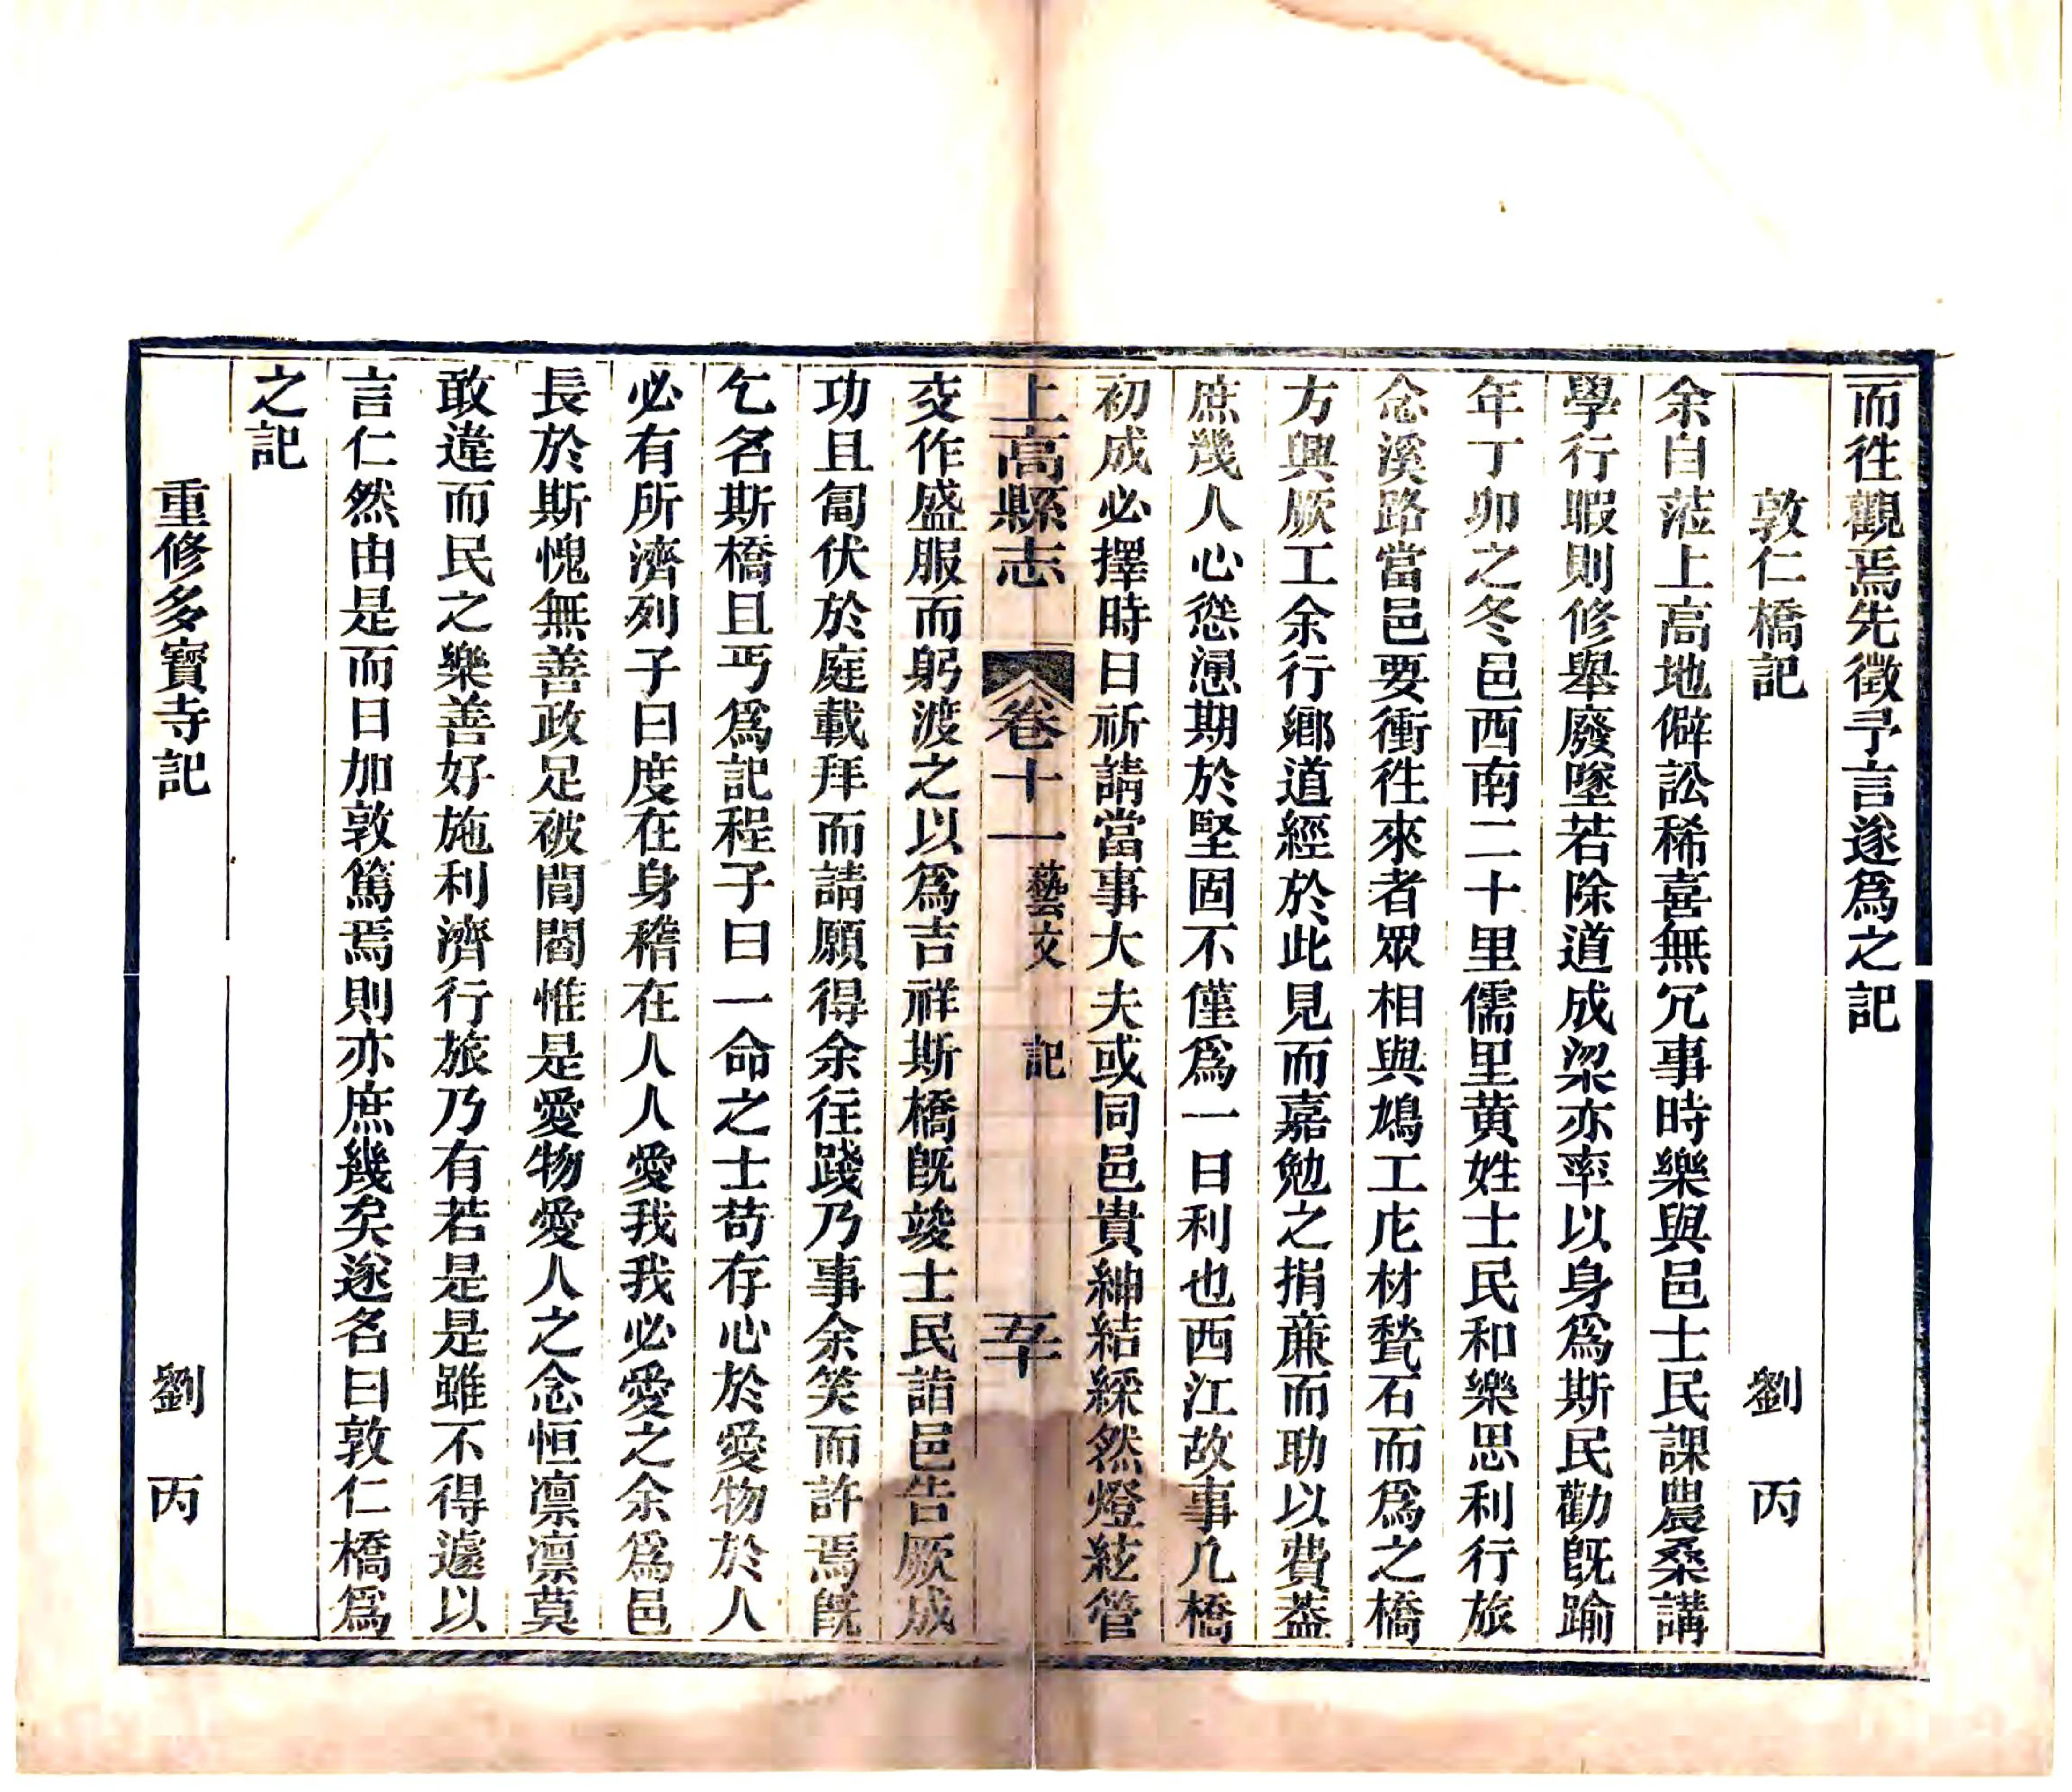 而徃觀焉先徵予言遂爲之記
敦仁橋記 劉丙
余自蒞上高地僻訟稀喜無冗事時樂與邑士民課農桑講
學行暇則修舉廢墜若除道成梁亦率以身爲斯民勸旣踰
年丁卯之冬邑西南二十里儒里黄姓士民和樂思利行旅
念溪路當邑要衝徃來者眾相與鳩工庀材甃石而爲之橋
方興厥工余行鄉道經於此見而嘉勉之捐亷而助以費葢
庶幾人心慫慂期於堅固不僅爲一日利也西江故事凢橋
初成必擇時日祈請當事大夫或同邑貴紳結綵然燈絃管
上高縣志 卷十一 藝文 記 五十
交作盛服而躬渡之以爲吉祥斯橋旣竣士民詣邑告厥成
功且匍伏於庭載拜而請願得余往踐乃事余笑而許焉旣
乞名斯橋且丐爲記程子曰一命之士苟存心於愛物於人
必有所濟列子曰度在身稽在人人愛我我必愛之余爲邑
長於斯愧無善政足被閭閻惟是愛物愛人之念恒凛凛莫
敢違而民之樂善好施利濟行旅乃有若是是雖不得遽以
言仁然由是而日加敦篤焉則亦庶幾矣遂名曰敦仁橋爲
之記
重修多寶寺記 劉丙